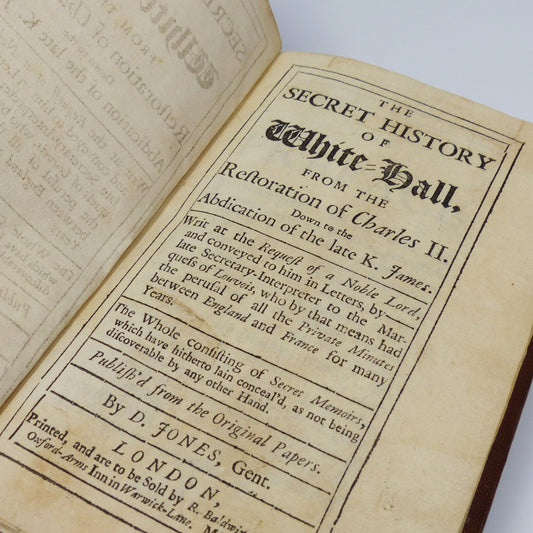 THE
SECRET HISTORY
OF
White=Hall,
FROM THE
Reſtoration of Charles II.
Down to the
Abdication of the late K. James.
Writ at the Requeſt of a Noble Lord,
and conveyed to him in Letters, by——
late Secretary-Interpreter to the Mar-
queſs of Louvois, who by that means had
the peruſal of all the Private Minutes
between England and France for many
Years.
The Whole conſiſting of Secret Memoirs,
which have hitherto lain conceal'd, as not being
diſcoverable by any other Hand.
Publiſh'd from the Original Papers.
By D. JONES, Gent.
LONDON,
Printed, and are to be Sold by R. Baldwin
Oxford-Arms Inn in Warwick-Lane.